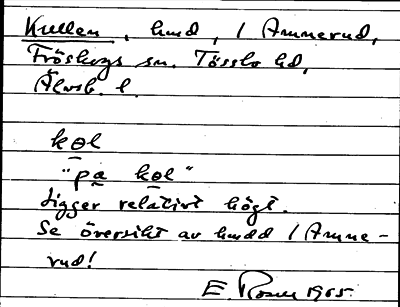 Kullen, hmd, / Ammerud,
Fröskogs sn. Tössbo hd,
Älvsb. l.
kɵl
"pa kɵl"
Ligger relativt högt.
Se översikt av hmdd / Amme-
rud!
E. 1965